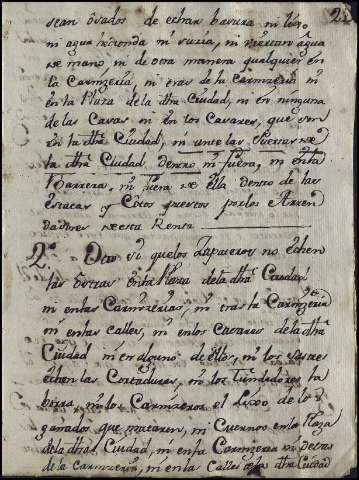 sean ôsados de echar basura ni lodo
ni agua hedionda ni suzia, ni viertan âgua
de mano ni de otra manera qualquier en
la Carnizeria, ni tras de la carnizeria ni
en la Plaza de la dħa Ciudad, ni en ninguna
de las Casas ni en los Casares, que son
en la dħa Ciudad, ni ante las Puertas de
la dħa Ciudad, dentro ni fuera, ni en la
Barrera, ni fuera de ella dentro de las
estacas y Cotos puestos por los Arren
dadores de esta Renta
2º Otro sí que los Zapateros no êchen
las en la Plaza de la dħa Ciudad
ni en las Carnizerias, ni tras la Carnizeria
ni en las calles, ni en los Casares de la dħa
Ciudad ni en alguno de êllos, ni los Sastres
êchen las Cortaduras, ni los tundidores la
borra, ni los Carnizeros el Lixo de los
ganados que mataren, ni Cuernos en la Plaza
de la dħa Ciudad, ni en la Carnizeria ni detras
de la carnizeria, ni en las Calles de la dħa Ciudad